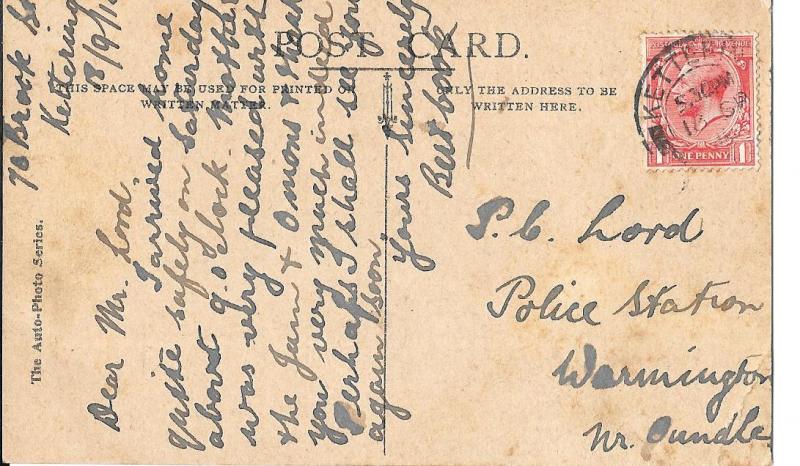 POST CARD.
THIS SPACE MAY BE USED FOR PRINTED OR
WRITTEN MATTER.
ONLY THE ADDRESS TO BE
WRITTEN HERE.
The Auto-Photo Series.
Brook
Kettering
Dear Mr. Lord.
I arrived home
quite safely on Saturday
about 9.o'clock. Mother
was very pleased with
the Jam & Onions & thank
you very much indeed
Perhaps I shall see you
again soon
Yours sincerely
Bert
KETTERING
5.30 PM
ONE PENNY
P.C. Lord
Police Station
Warmington
Nr. Oundle